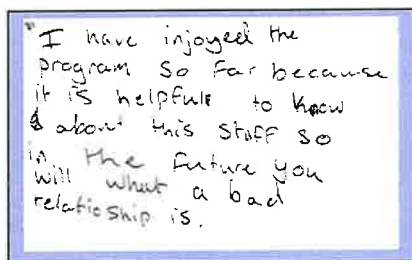 I have injoyed the
program so far because
it is helpfull to know
about this stuff so
in the future you
will what a bad
relatioship is.